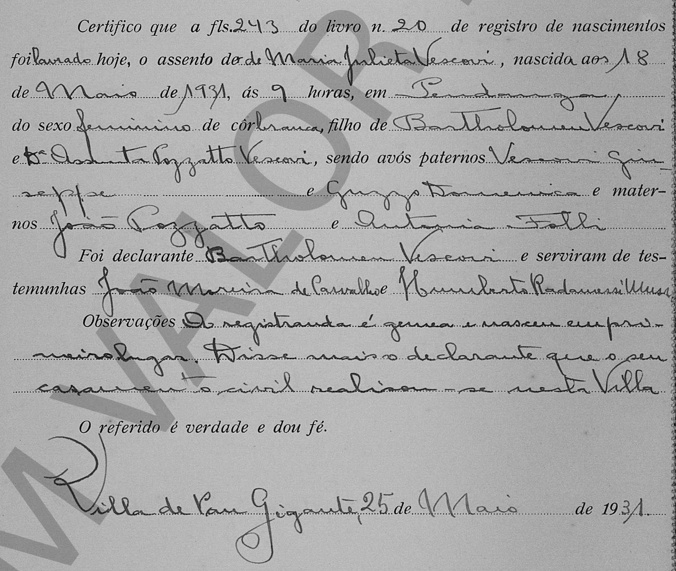 Certifico que a fls. 243 do livro n. 20 de registro de nascimentos
foi lavrado hoje, o assento de de Maria Julieta Vescovi, nascida aos 18
de Maio de 1931, ás 9 horas, em Pendanga,
do sexo feminino de côr branca, filho de Bartholomeu Vescovi
e Dª Assunta Pozzatto Vescovi, sendo avós paternos Vescovi Giu-
seppe e Guzzo Domenica e mater-
nos João Pozzatto e Antonia Folli
Foi declarante Bartholomeu Vescovi e serviram de tes-
temunhas João Moreira de Carvalho e Humberto
Observações A registranda é gemea e nasceu em pri-
meiro lugar. Disse mais o declarante que o seu
casamento civil realisou-se nesta Villa
O referido é verdade e dou fé.
Villa de Pau Gigante, 25 de Maio de 1931.
M VALOR